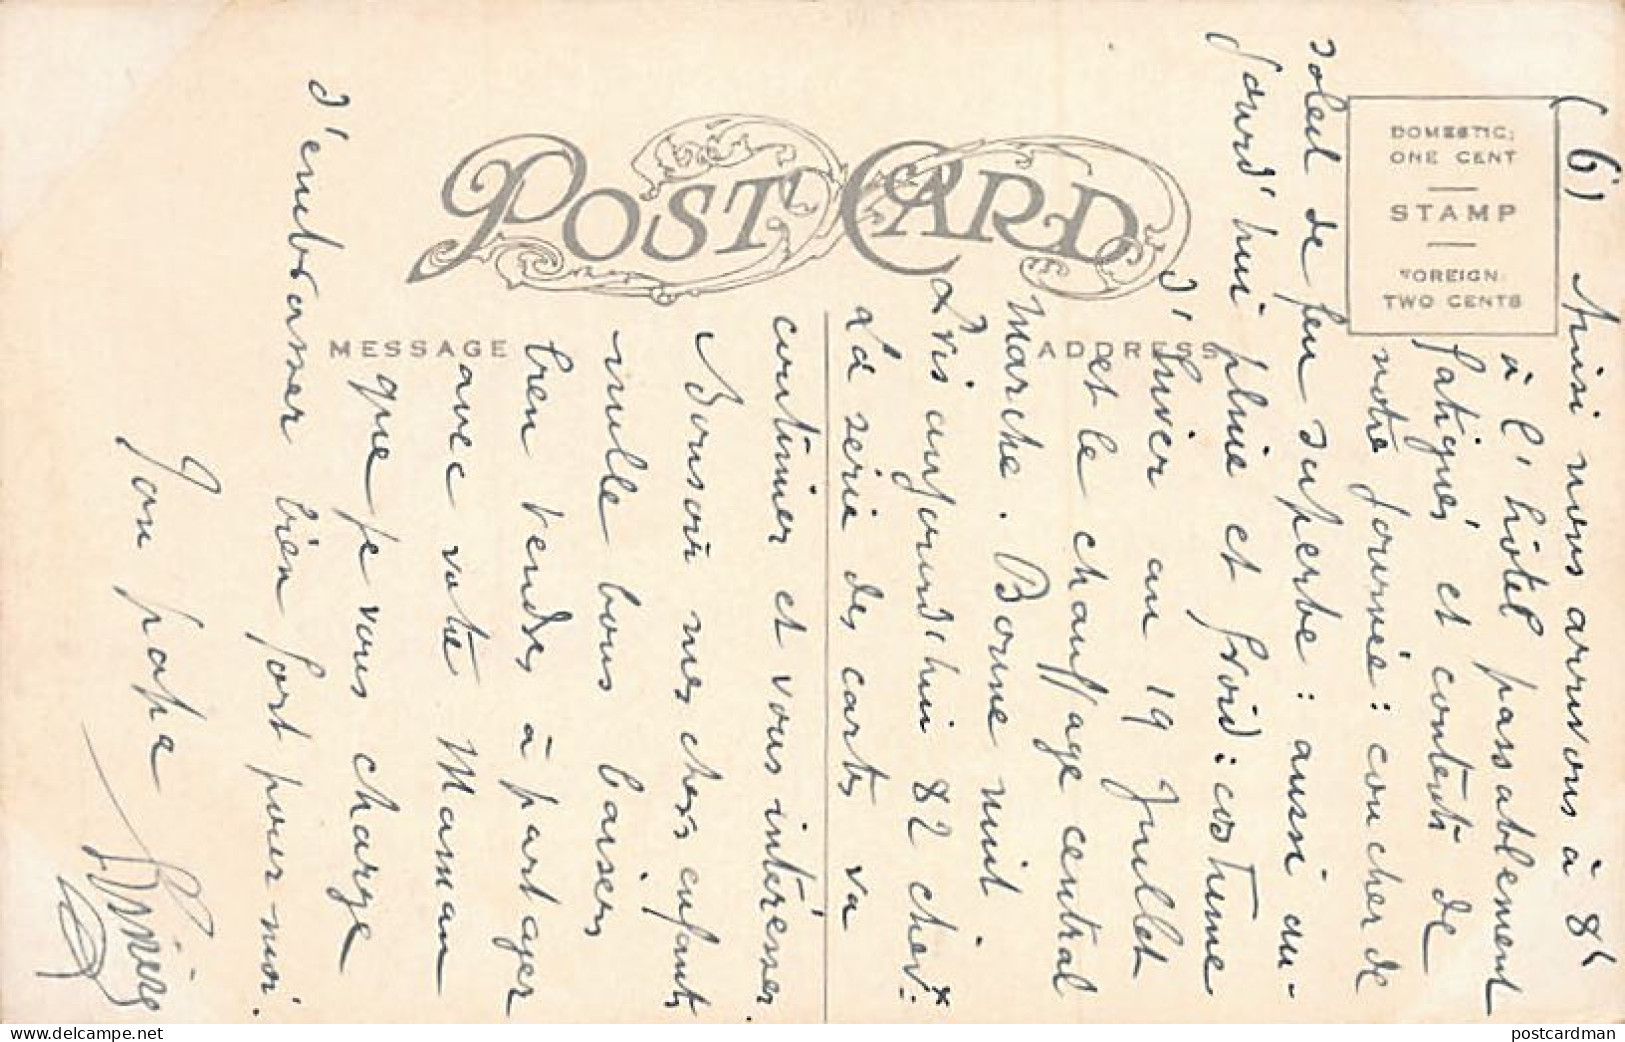 (6) Ainsi nous arrivons à 8h
à l'hôtel passablement
fatigués et contents de
notre journée: coucher de
soleil de feu superbe: aussi au-
jourd'hui pluie et froid: costume
d'hiver au 19 Juillet
et le chauffage central
marche. Bonne nuit
aujourd'hui 82
La série des cartes va
continuer et vous intéresser.
Bonsoir mes chers enfants
mille bons baisers
bien tendres à partager
avec votre Maman
que je vous charge
d'embrasser bien fort pour moi.
Ton papa
POST CARD
MESSAGE
ADDRESS
DOMESTIC:
ONE CENT
STAMP
FOREIGN:
TWO CENTS
delcampe.net
postcardman